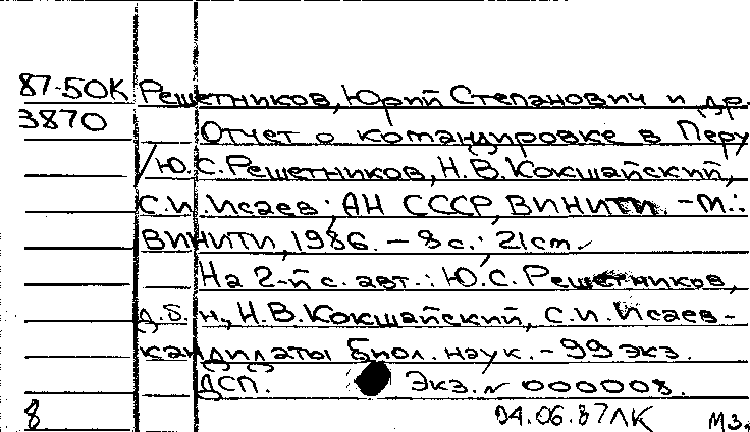 87-50К Решетников, Юрий Степанович и др.
3870 Отчет о командировке в Перу
/Ю.С.Решетников, Н.В.Кокшайский,
С.И.Исаев; АН СССР, ВИНИТИ. - М.:
ВИНИТИ, 1986. - 8 с.; 21 cm.
На 2-й с. авт.: Ю.С.Решетников,
д.б.н., Н.В.Кокшайский, С.И.Исаев-
кандидаты биол. наук. - 99 экз.
ДСП. Экз. N 000008.
8 04.06.87ЛК МЗ.